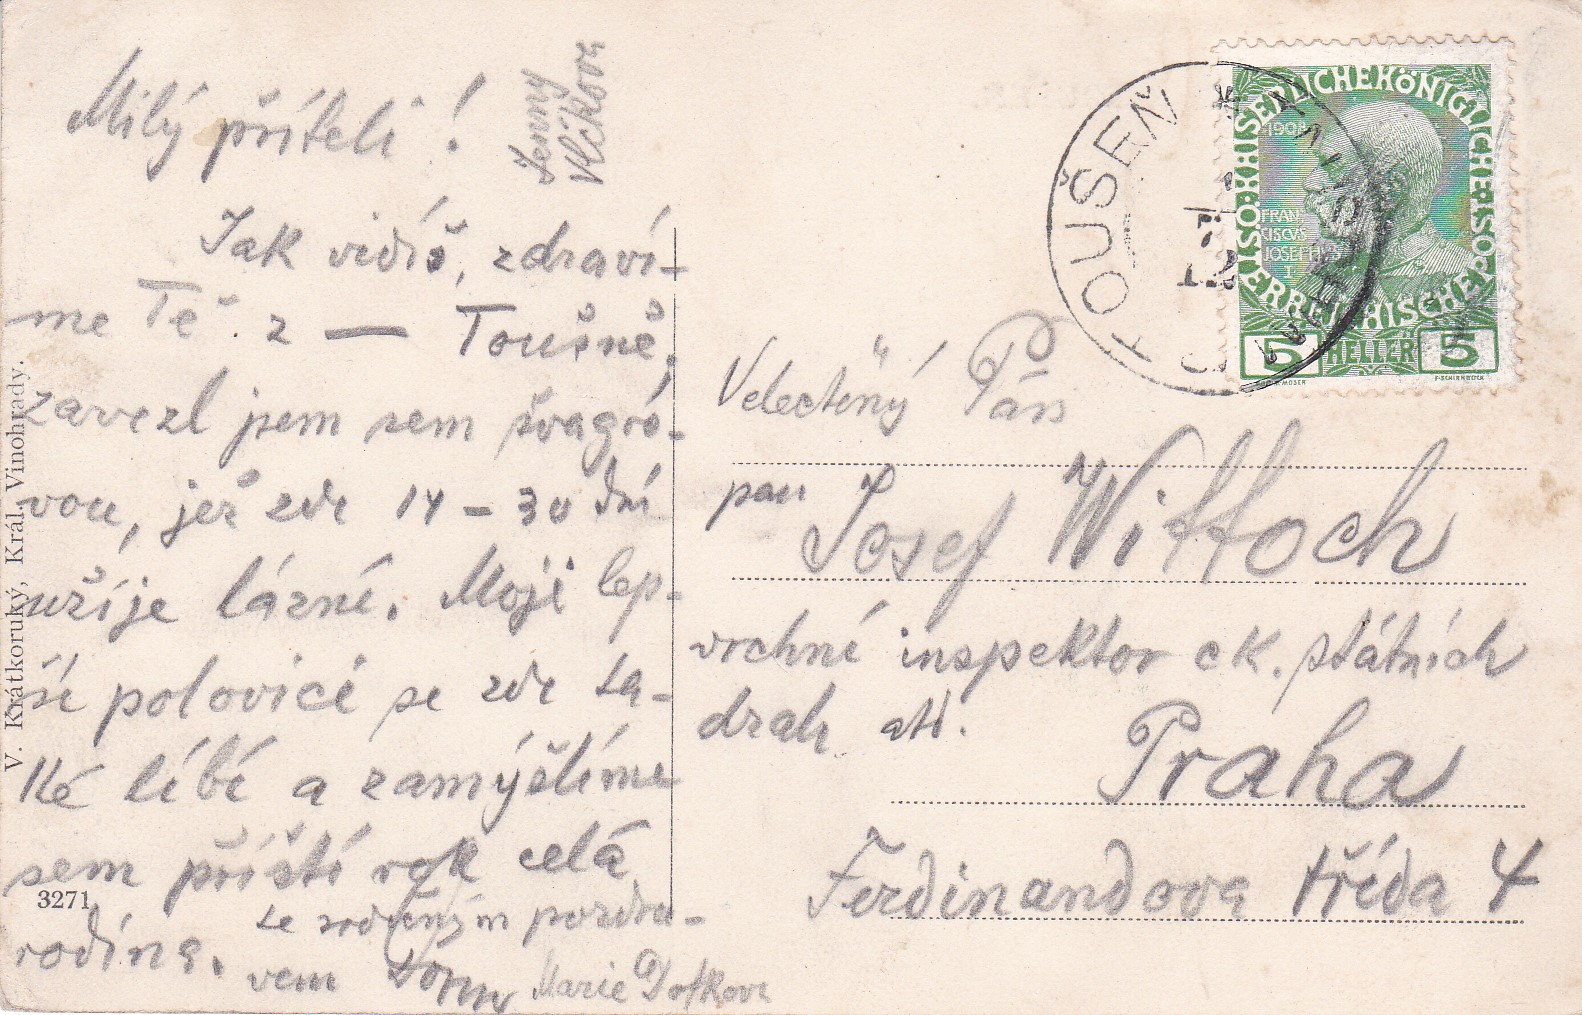 Milý příteli!
Jenny
Vlčkova
Jak vidíš, zdraví-
me Tě z — Toušně,
zavezl jsem sem švagro-
vou, jež zde 14 - 30 dní
užije lázně. Moji lep-
ší polovici se zde ta-
ké líbí a zamýšlíme
sem příští rok celá
rodina.
se srdečným pozdra-
vem
Marie
V. Krátkoruký, Král. Vinohrady.
3271
TOUŠEŇ
1908
ÖSTERREICHISCHE
KAISERLICHE KÖNIGLICHE
FRAN
CISCVS
IOSEPH
I
5 HELLER 5
Velectěný Pán
pan
Josef Wittoch
vrchní inspektor ck. státních
drah atd.
Praha
Ferdinandova třída 4